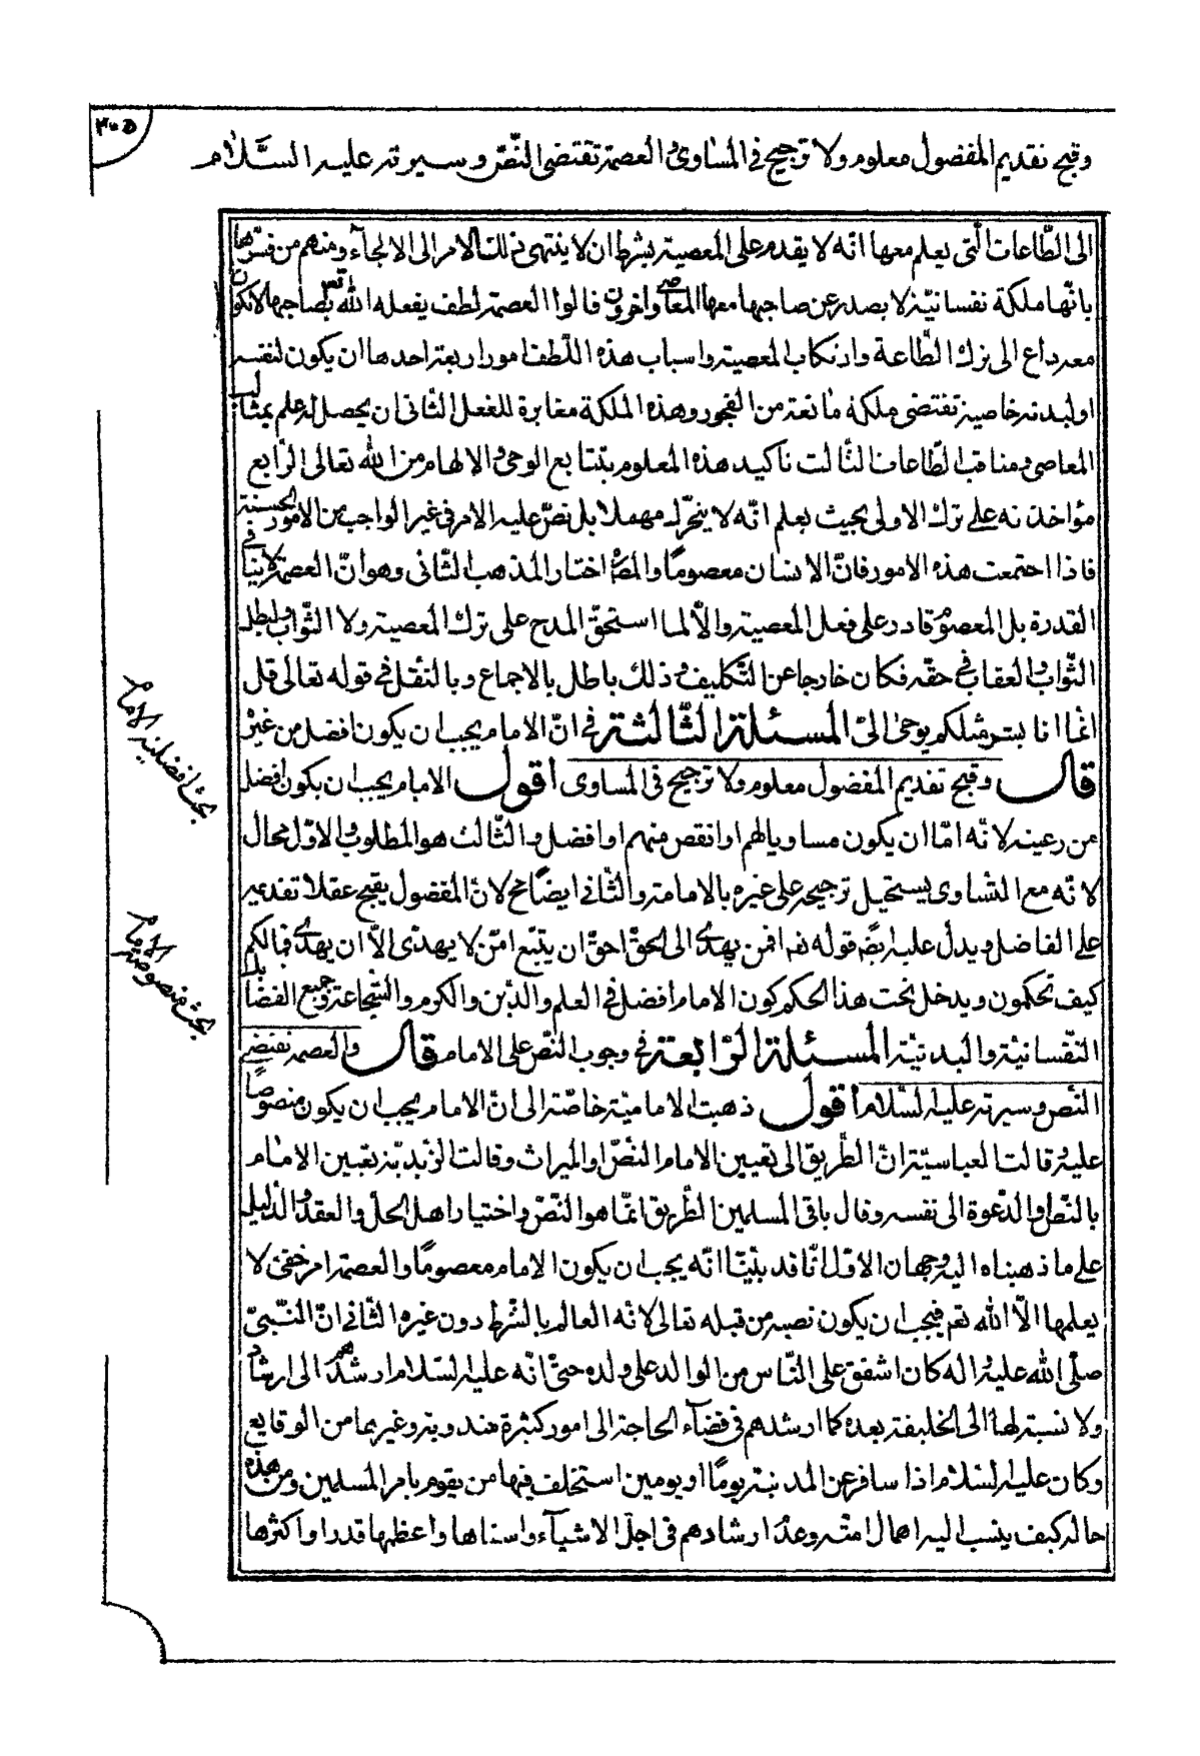 ٣٠٥
وقبح تقديم المفضول معلوم ولا ترجيح في المساوى والعصمة تقتضى النّصّ وسيرته عليه السَّلام
الى الطّاعات الّتى يعلم معها انّه لا يقدم على المعصية بشرط ان لا ينتهى ذلك الامر الى الالجآء ومنهم من فسّرها
بانّها ملكة نفسانيّة لا يصدر عن صاحبها معها المعاصى وآخرون قالوا العصمة لطف يفعله الله تعم بصاحبها لا يكون
معه داع الى ترك الطّاعة وارتكاب المعصية واسباب هذه اللّطف امور اربعة احدها ان يكون لنفسه
او لبدنه خاصية تقتضى ملكة مانعة من الفجور وهذه الملكة مغايرة للفعل الثّانى ان يحصل له علم بمثالب
المعاصى ومناقب الطّاعات الثّالث تاكيد هذه المعلوم بتتابع الوحى والالهام من الله تعالى الرّابع
مؤاخذته على ترك الاولى بحيث يعلم انّه لا يترك مهملا بل نصّ عليه الامر فى غير الواجب من الامور الحسنة
فاذا اجتمعت هذه الامور فانّ الانسان معصومًا والمصَ اختار المذهب الثّانى وهو انّ العصمة لا ينافى
القدرة بل المعصوم قادر على فعل المعصية والّا لما استحقّ المدح على ترك المعصية ولا الثّواب ولبطل
الثّواب والعقاب فى حقّه فكان خارجا عن التّكليف وذلك باطل بالاجماع وبالنّقل فى قوله تعالى قل
انّما انا بشر مثلكم يوحىٰ الىّ المسئلة الثّالثة فى انّ الامام يجب ان يكون افضل من غيره
قال وقبح تقديم المفضول معلوم ولا ترجيح فى المساوى اقول الامام يجب ان يكون افضل
من رعيته لانّه امّا ان يكون مساويا لهم او انقص منهم او افضل والثّالث هو المطلوب والاوّل محال
لانّه مع التّساوى يستحيل ترجيحه على غيره بالامامة والثّانى ايضًا مح لانّ المفضول يقبح عقلا تقديمه
على الفاضل ويدل عليه ايضًا قوله تعم افمن يهدى الى الحقّ احقّ ان يتبع امّن لا يهدّى الّا ان يهدى فما لكم
كيف تحكمون ويدخل تحت هذا الحكم كون الامام افضل فى العلم والدّين والكرم والشّجاعة وجميع الفضايل
النّفسانيّة والبدنيّة المسئلة الرّابعة فى وجوب النّصّ على الامام قال والعصمة تقتضى
النّص وسيرته عليه السّلام اقول ذهبت الاماميّة خاصّة الى انّ الامام يجب ان يكون منصوصًا
عليه وقالت العباسيّة انّ الطّريق الى تعيين الامام النّصّ والميراث وقالت الزّيديّة تعيين الامام
بالنّصّ او الدّعوة الى نفسه وقال باقى المسلمين الطّريق انّما هو النّصّ واختيار اهل الحلّ والعقد والدّليل
على ما ذهبناه اليه وجهان الاوّل انّا قد بيّنّا انّه يجب ان يكون الامام معصومًا والعصمة امر خفىّ لا
يعلمها الّا الله تعم فيجب ان يكون نصبه من قبله تعالى لانّه العالم بالشّرط دون غيره الثّانى انّ النّبىّ
صلّى الله عليه وآله كان اشفق على النّاس من الوالد على ولده حتّى انّه عليه السّلام ارشدهم الى اشياء
ولا نسبة لها الى الخليفة بعده كما ارشدهم فى قضآء الحاجة الى امور كثيرة مندوبة وغيرها من الوقايع
وكان عليه السّلام اذا سافر عن المدينة يومًا او يومين استخلف فيها من يقوم بامر المسلمين ومن هذه
حاله كيف ينسب اليه اهمال امّته وعدم ارشادهم فى اجلّ الاشيآء واسناها واعظمها قدرا واكثرها
بحث افضلية الامام
بحث منصوصية الامام